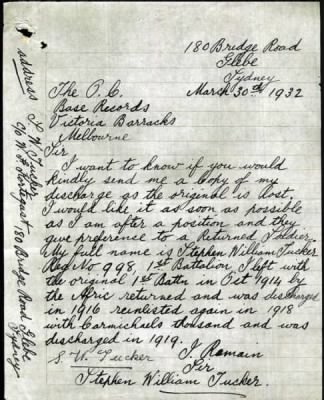 180 Bridge Road
Glebe
Sydney
March 30th 1932
The O. C.
Base Records
Victoria Barracks
Melbourne
Sir
I want to know if you would
kindly send me a copy of my
discharge as the original is lost.
I would like it as soon as possible
as I am after a position and they
give preference to a Returned Soldier.
My full name is Stephen William Tucker
Reg No 998, 1st Battalion, I left with
the original 1st Battn in Oct 1914 by
the Afric returned and was discharged
in 1916 reinlisted again in 1918
with Carmichaels thousand and was
discharged in 1919.
I Remain
Sir
S. W. Tucker
Stephen William Tucker.
address S. W. Tucker
180 Bridge Road Glebe
Sydney